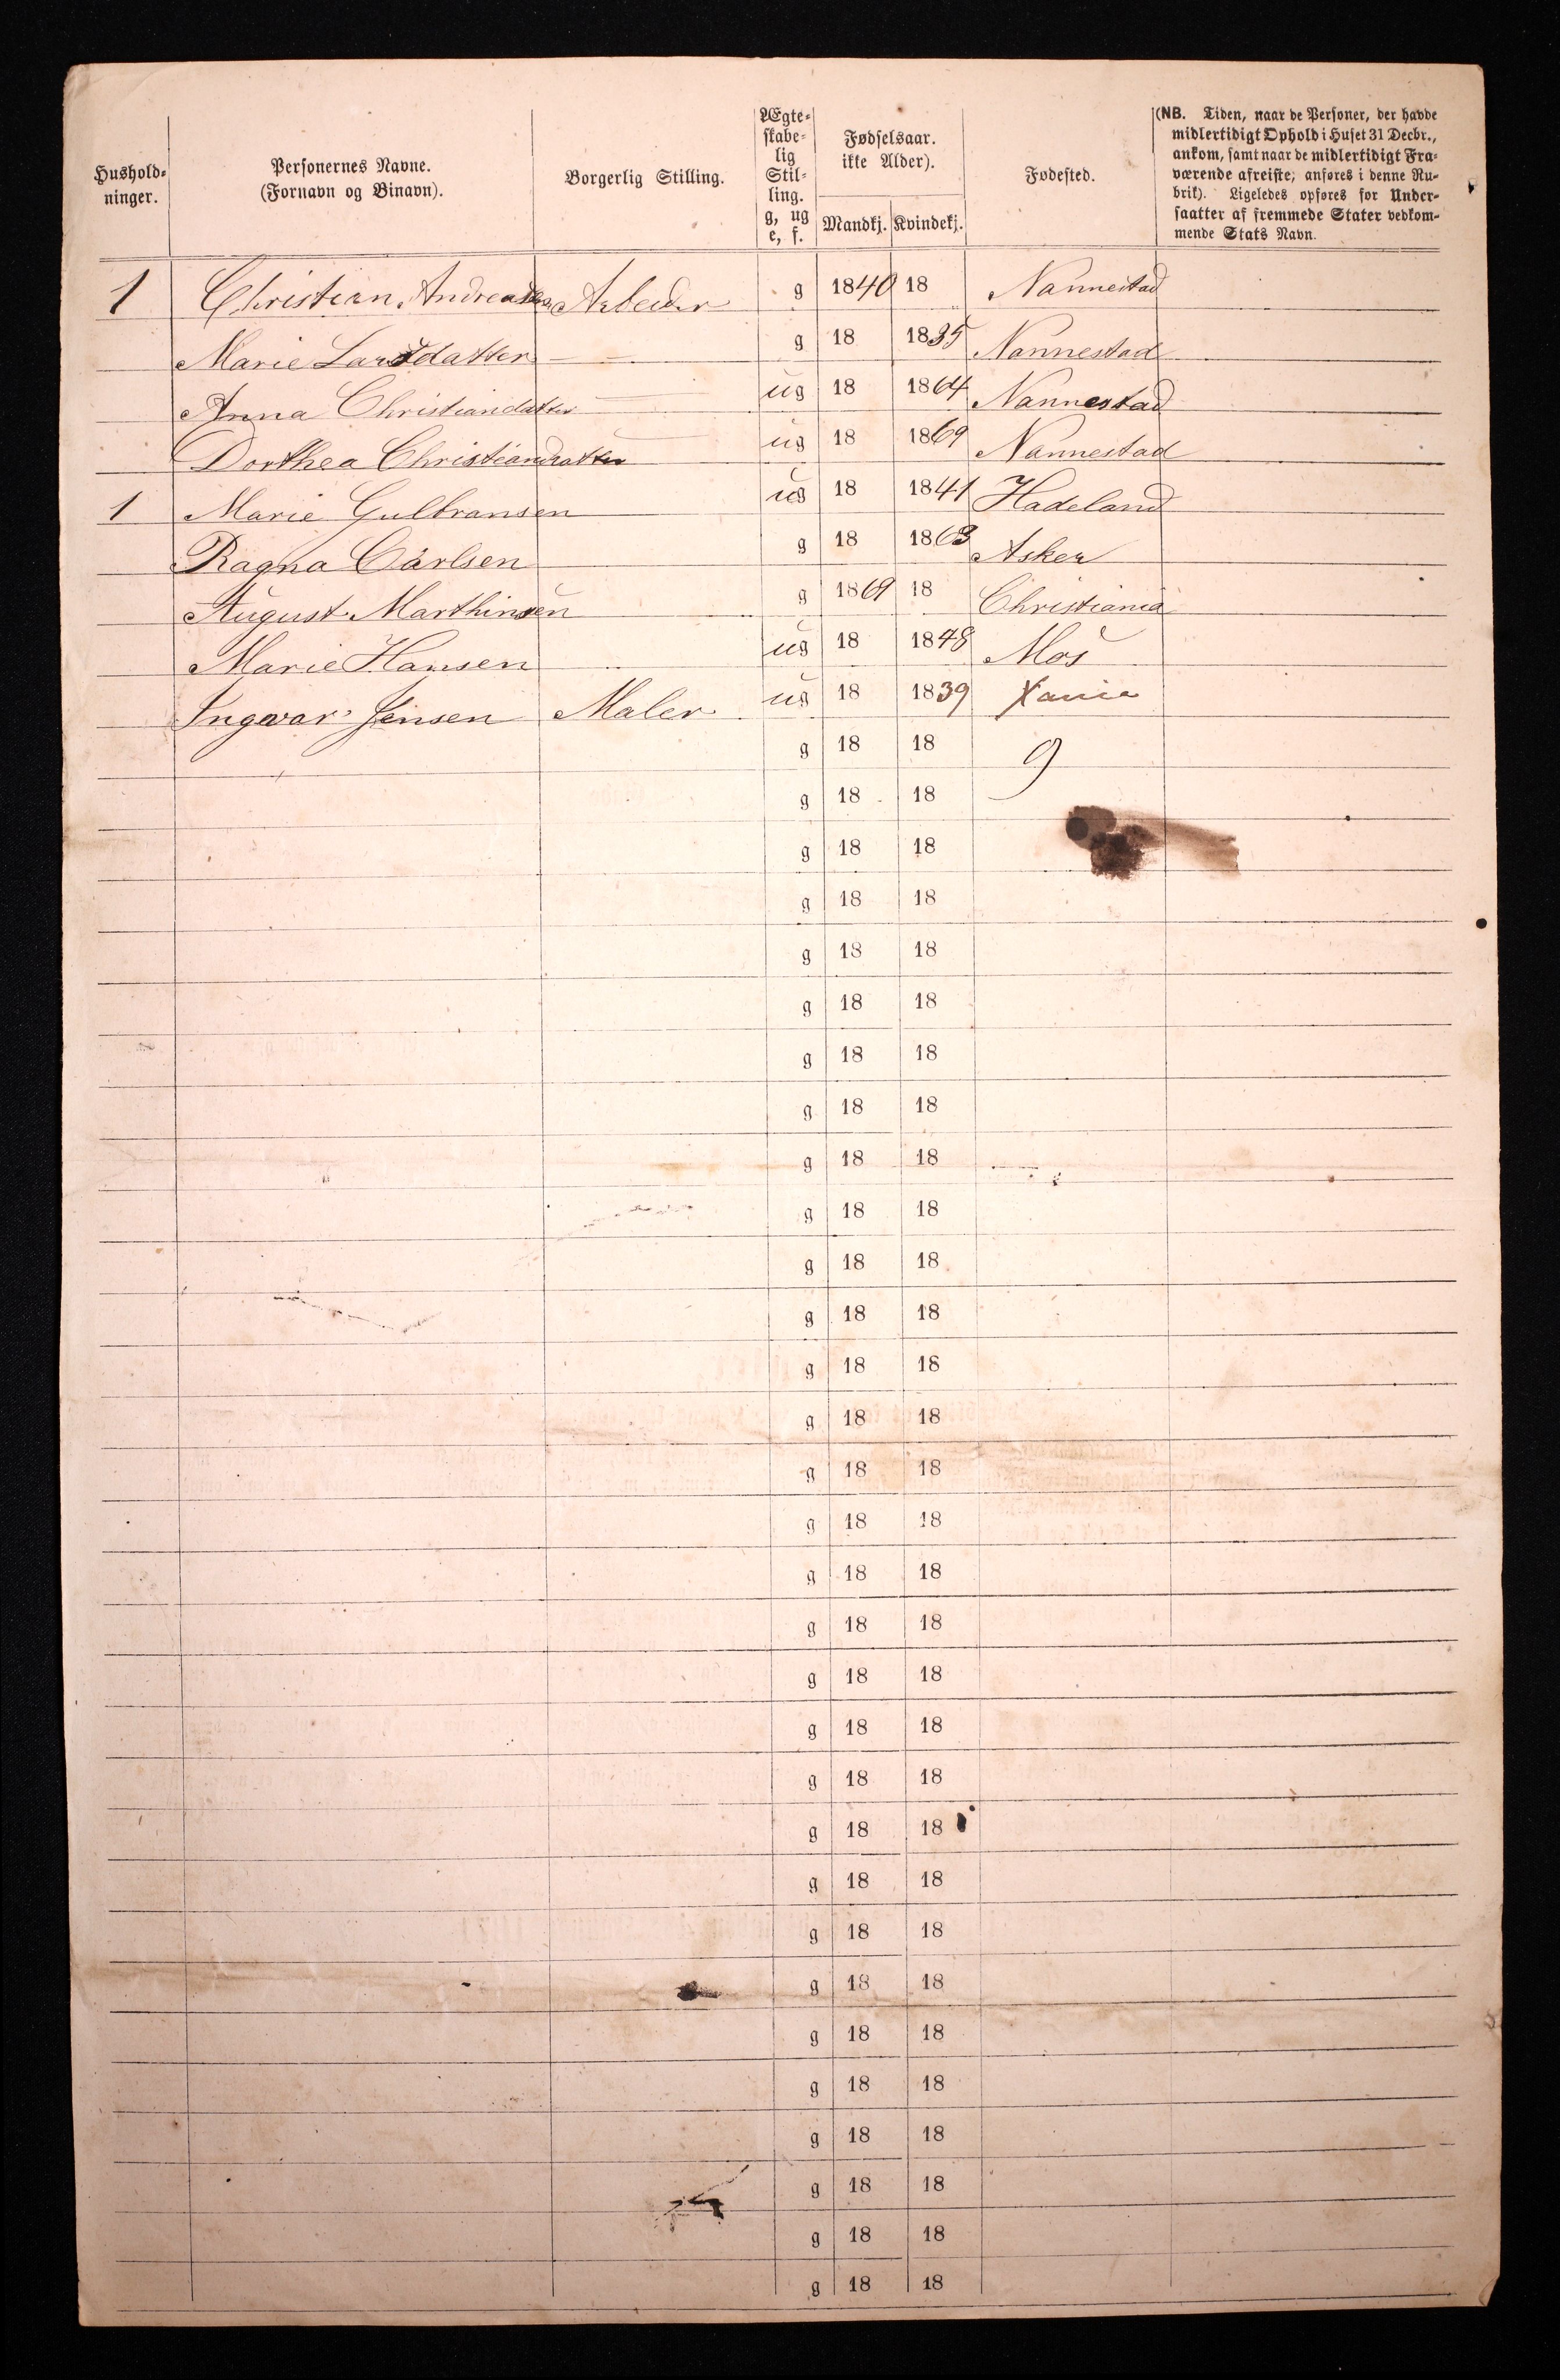 Hushold-
ninger.
Personernes Navne.
(Fornavn og Binavn).
Borgerlig Stilling.
Ægte-
skabe-
lig
Stil-
ling.
g, ug
e, f.
Fødselsaar.
ikke Alder).
Mandkj. Kvindekj.
Fødested.
(NB. Tiden, naar de Personer, der havde
midlertidigt Ophold i Huset 31 Decbr.,
ankom, samt naar de midlertidigt Fra-
værende afreiste; anføres i denne Ru-
brik). Ligeledes opføres for Under-
saatter af fremmede Stater vedkom-
mende Stats Navn.
1 Christian Andreasen Arbeider g 1840 18 Nannestad
Marie Larsdatter g 18 1835 Nannestad
Anna Christiandatter ug 18 1864 Nannestad
Dorthea Christiandatter ug 18 1869 Nannestad
1 Marie Gulbransen ug 18 1841 Hadeland
Ragna Carlsen g 18 1863 Asker
August Marthinsen g 1869 18 Christiania
Marie Hansen ug 18 1848 Mos
Ingvar Jensen Maler ug 18 1839 Xania
g 18 18 9
g 18 18
g 18 18
g 18 18
g 18 18
g 18 18
g 18 18
g 18 18
g 18 18
g 18 18
g 18 18
g 18 18
g 18 18
g 18 18
g 18 18
g 18 18
g 18 18
g 18 18
g 18 18
g 18 18
g 18 18
g 18 18
g 18 18
g 18 18
g 18 18
g 18 18
g 18 18
g 18 18
g 18 18
g 18 18
g 18 18